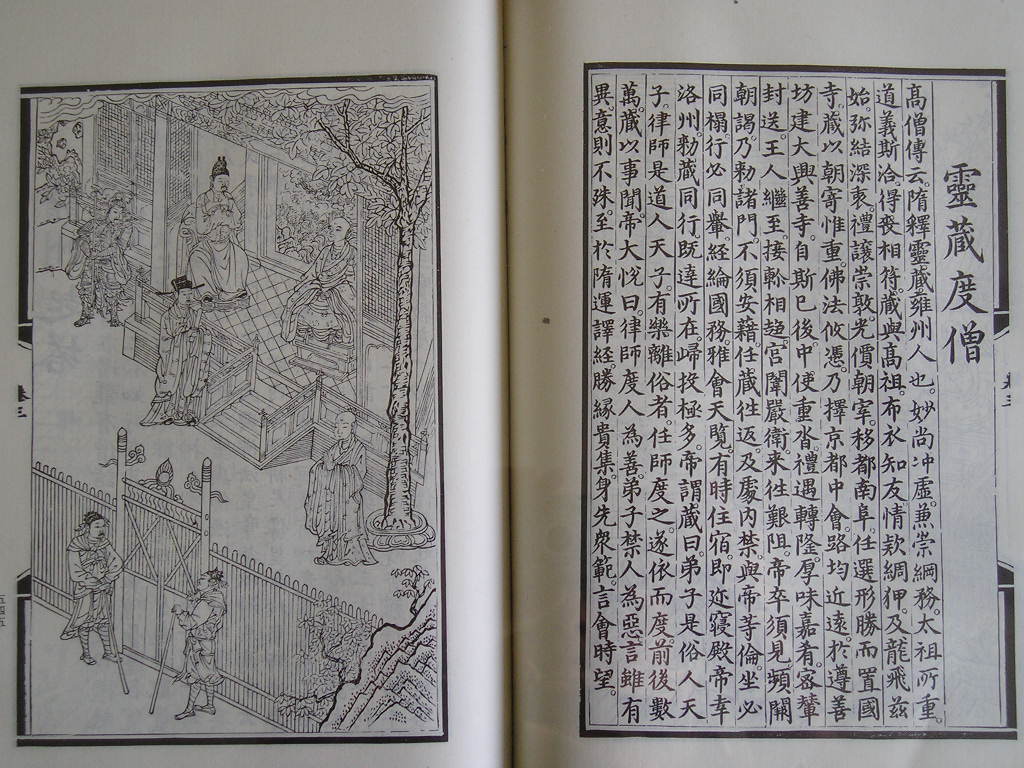 靈藏度僧
高僧傳云。隋釋靈藏。雍州人也。妙尚冲虛。兼崇綱務。太祖所重。
道義斯洽。得喪相符。藏與高祖。布衣知友。情欵綢狎。及龍飛兹
始。弥結深衷。禮讓崇敦。光價朝宰。移都南阜。任選形勝。而置國
寺。藏以朝寄惟重。佛法攸憑。乃擇京都中會。路均近遠。於遵善
坊建大興善寺。自斯已後。中使重沓。禮遇轉隆。厚味嘉肴。密輦
封送。王人繼至。接軫相趍。官闈嚴衛。來往艱阻。帝卒須見。頻闕
朝謁。乃勑諸門。不須安籍。任藏往返。及處內禁。與帝等倫。坐必
同榻。行必同轝。經綸國務。雅會天覽。有時住宿。即迩寢殿。帝幸
洛州。勑藏同行。既達所在。歸投極多。帝謂藏曰。弟子是俗人天
子。律師是道人天子。有樂離俗者。任師度之。遂依而度。前後數
萬。藏以事聞。帝大悅曰。律師度人為善。弟子禁人為惡。言雖有
異。意則不殊。至於隋運譯經。勝緣貴集。身先衆範。言會時望。
卷三
五四五